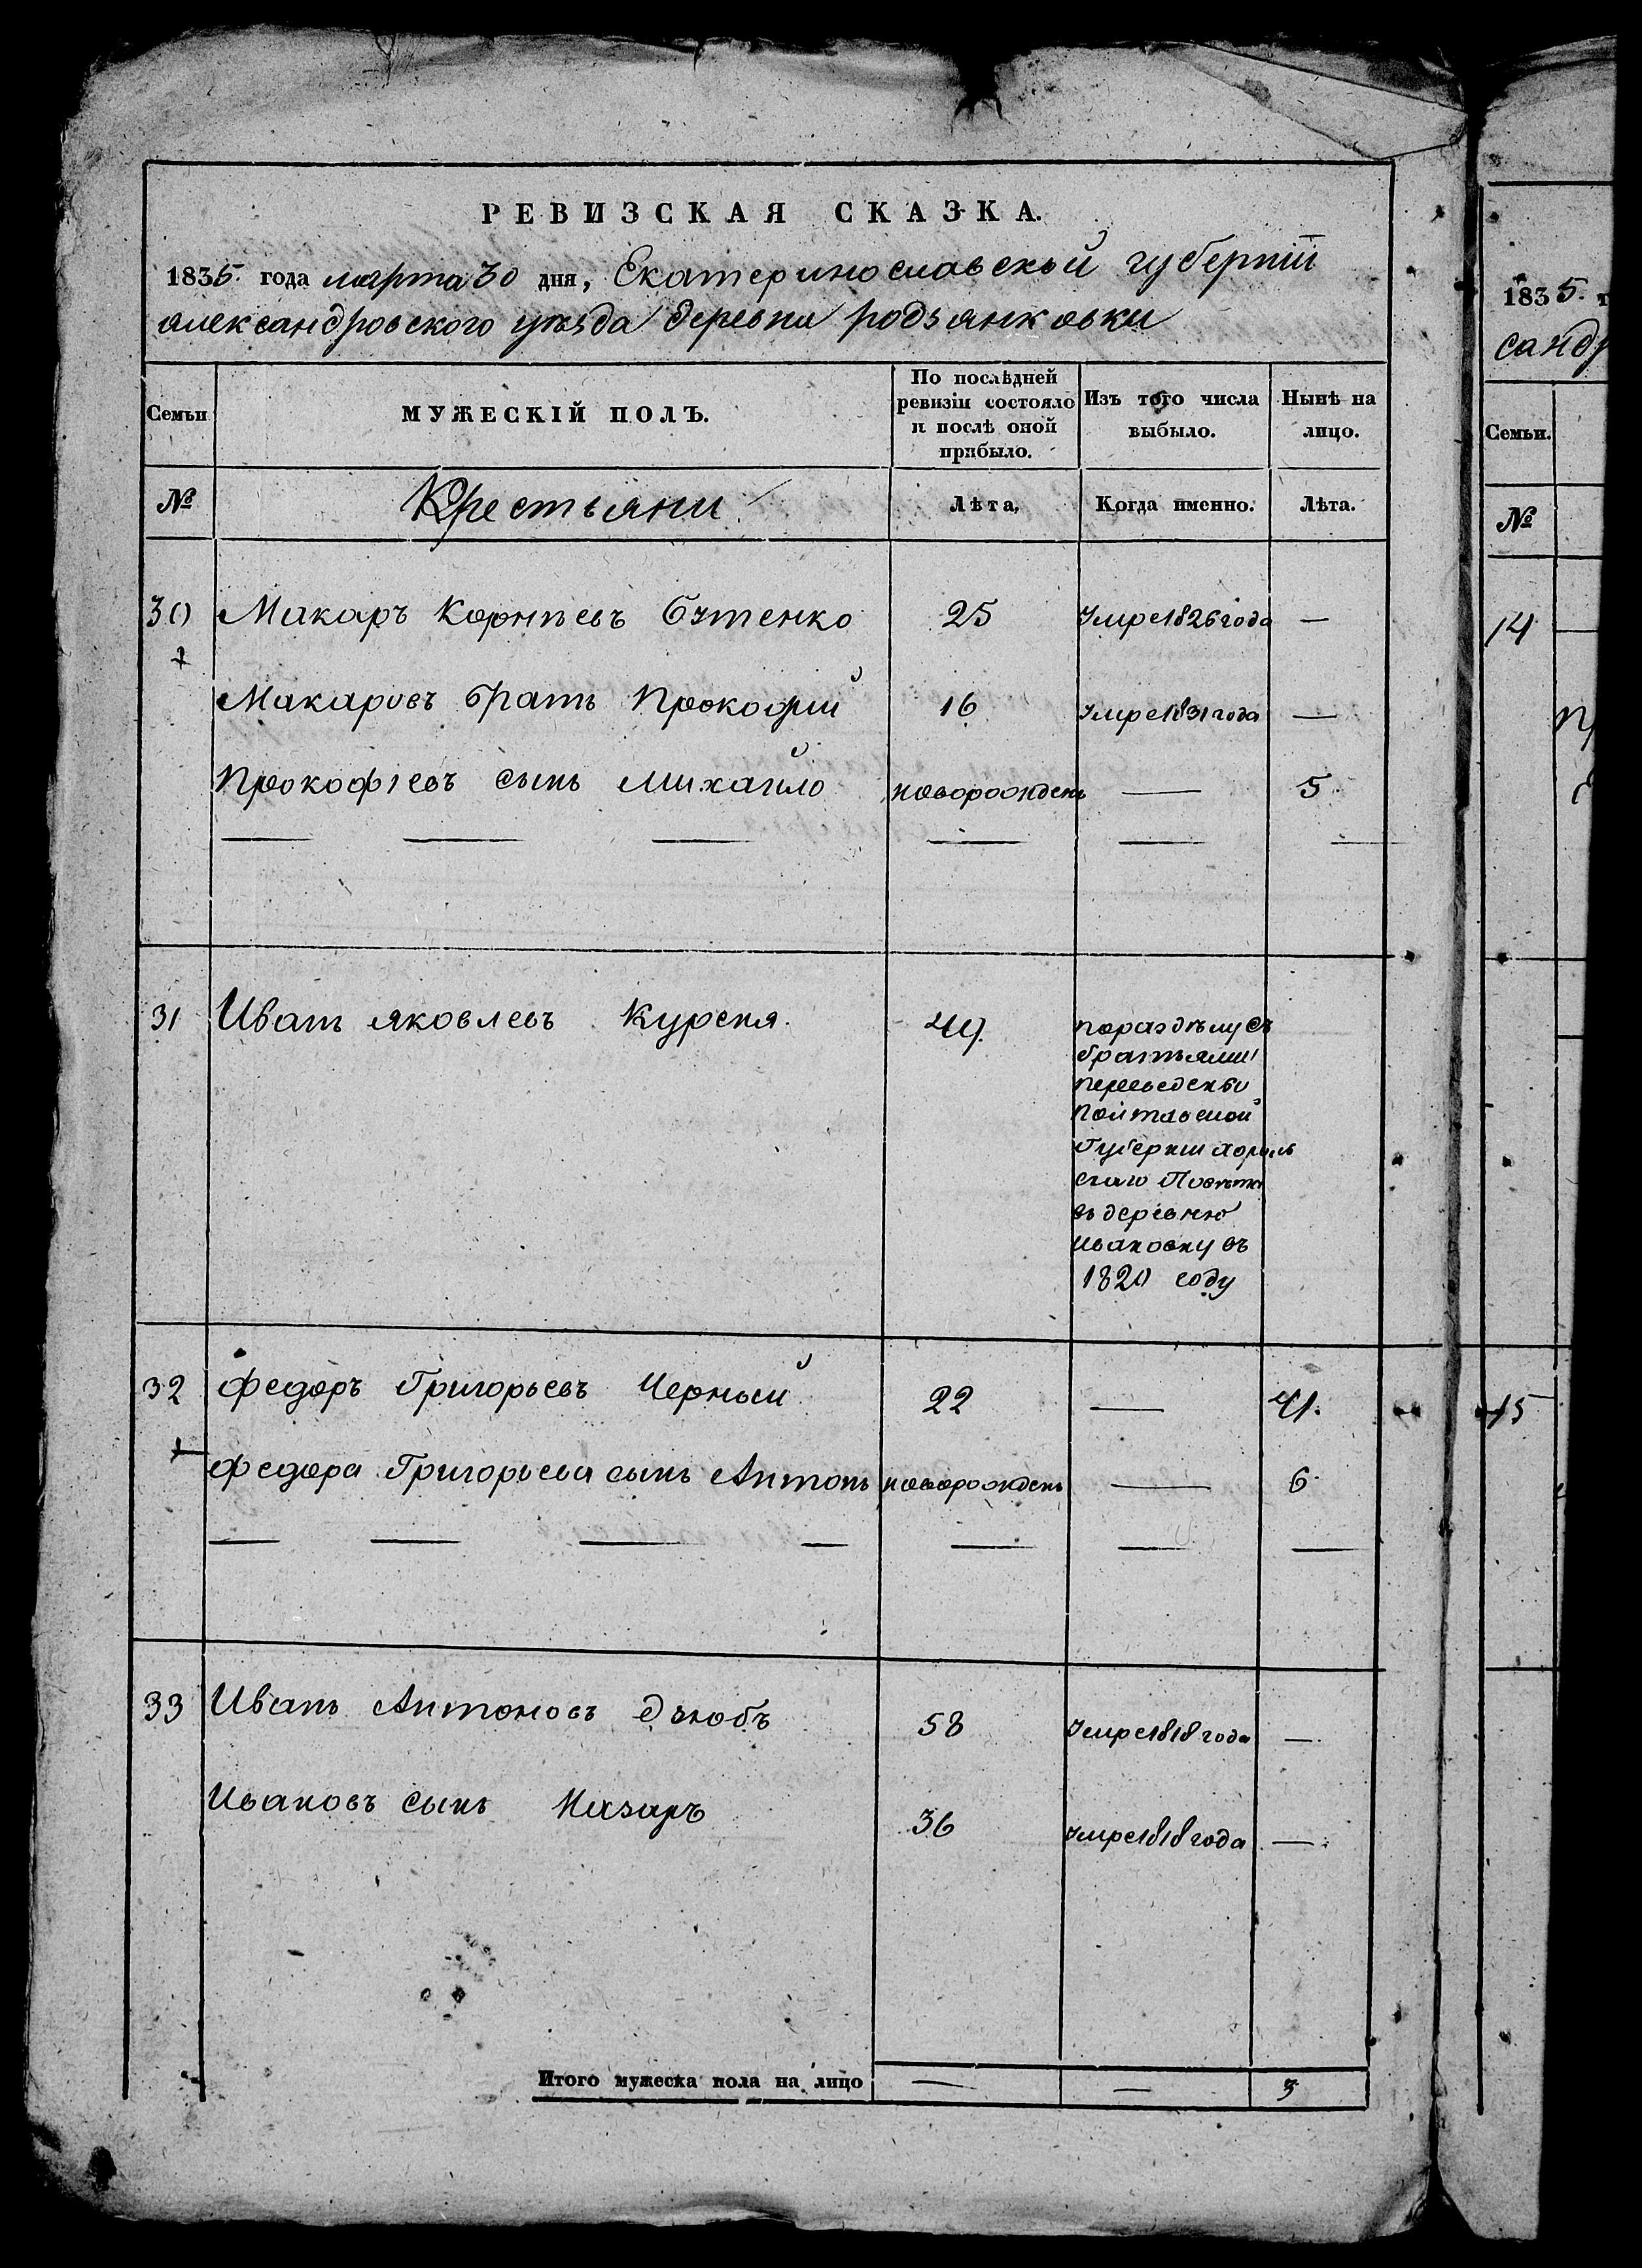 РЕВИЗСКАЯ СКАЗКА.
1835 года марта 30 дня, Екатеринославской губернiи
александровского уѣзда деревни родзянковки
Семьи
МУЖЕСКІЙ ПОЛЪ.
По послѣдней ревизіи состояло и послѣ оной прибыло.
Изъ того числа выбыло.
Нынѣ на лицо.
№ Крестьяни Лѣта, Когда именно. Лѣта.
30 Макаръ Корнѣевъ Бутенко 25 Умре 1826 года —
Макаровъ братъ Прокофий 16 Умре 1831 года —
Прокофіевъ сынъ Михайло новорожденъ — 5
31 Иванъ яковлевъ Курепя. 49. по раздѣлу съ
братьями
переведенъ
Полтавской
Губернии хороль
скаго Повѣта
въ деревню
ивановку въ
1820 году
32 федоръ Григорьевъ Черный 22 — 41.
федора Григорьева сынъ Антонъ новорожденъ — 6
33 Иванъ Антоновъ дзюбъ 58 Умре 1818 года —
Ивановъ сынъ Назаръ 36 умре 1818 года —
Итого мужеска пола на лицо — — 3
1835.
санд
Семьи.
№
14
15